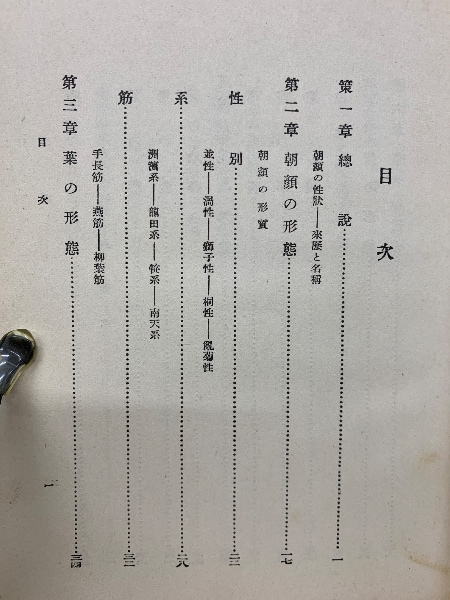 目次
第一章 總說 一
朝顏の性狀——來歷と名稱
第二章 朝顏の形態 一七
朝顏の形質
性別
並性——渦性——獅子性——桐性——亂菊性
系 二八
洲濱系——龍田系——笹系——南天系
筋
手長筋——燕筋——柳葉筋
第三章 葉の形態 三四
目次
一